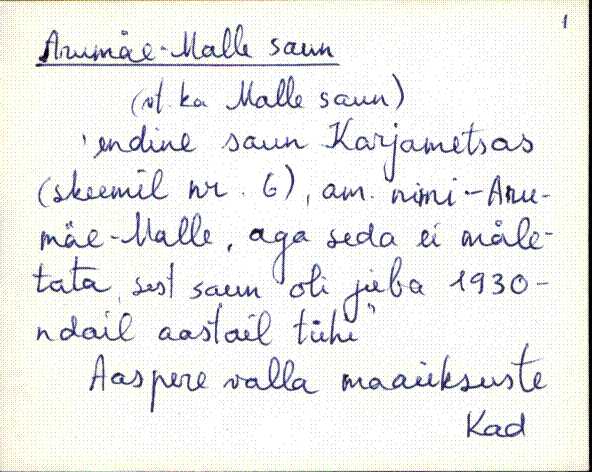 1
Arumäe-Malle saun
(vt. ka Malle saun)
'endine saun Karjametsas
(skeemil nr. 6), am. nimi - Aru-
mäe-Malle, aga seda ei mäle-
tata, sest saun oli juba 1930-
ndail aastail tühi"
Aaspere valla maaüksuste
Kad